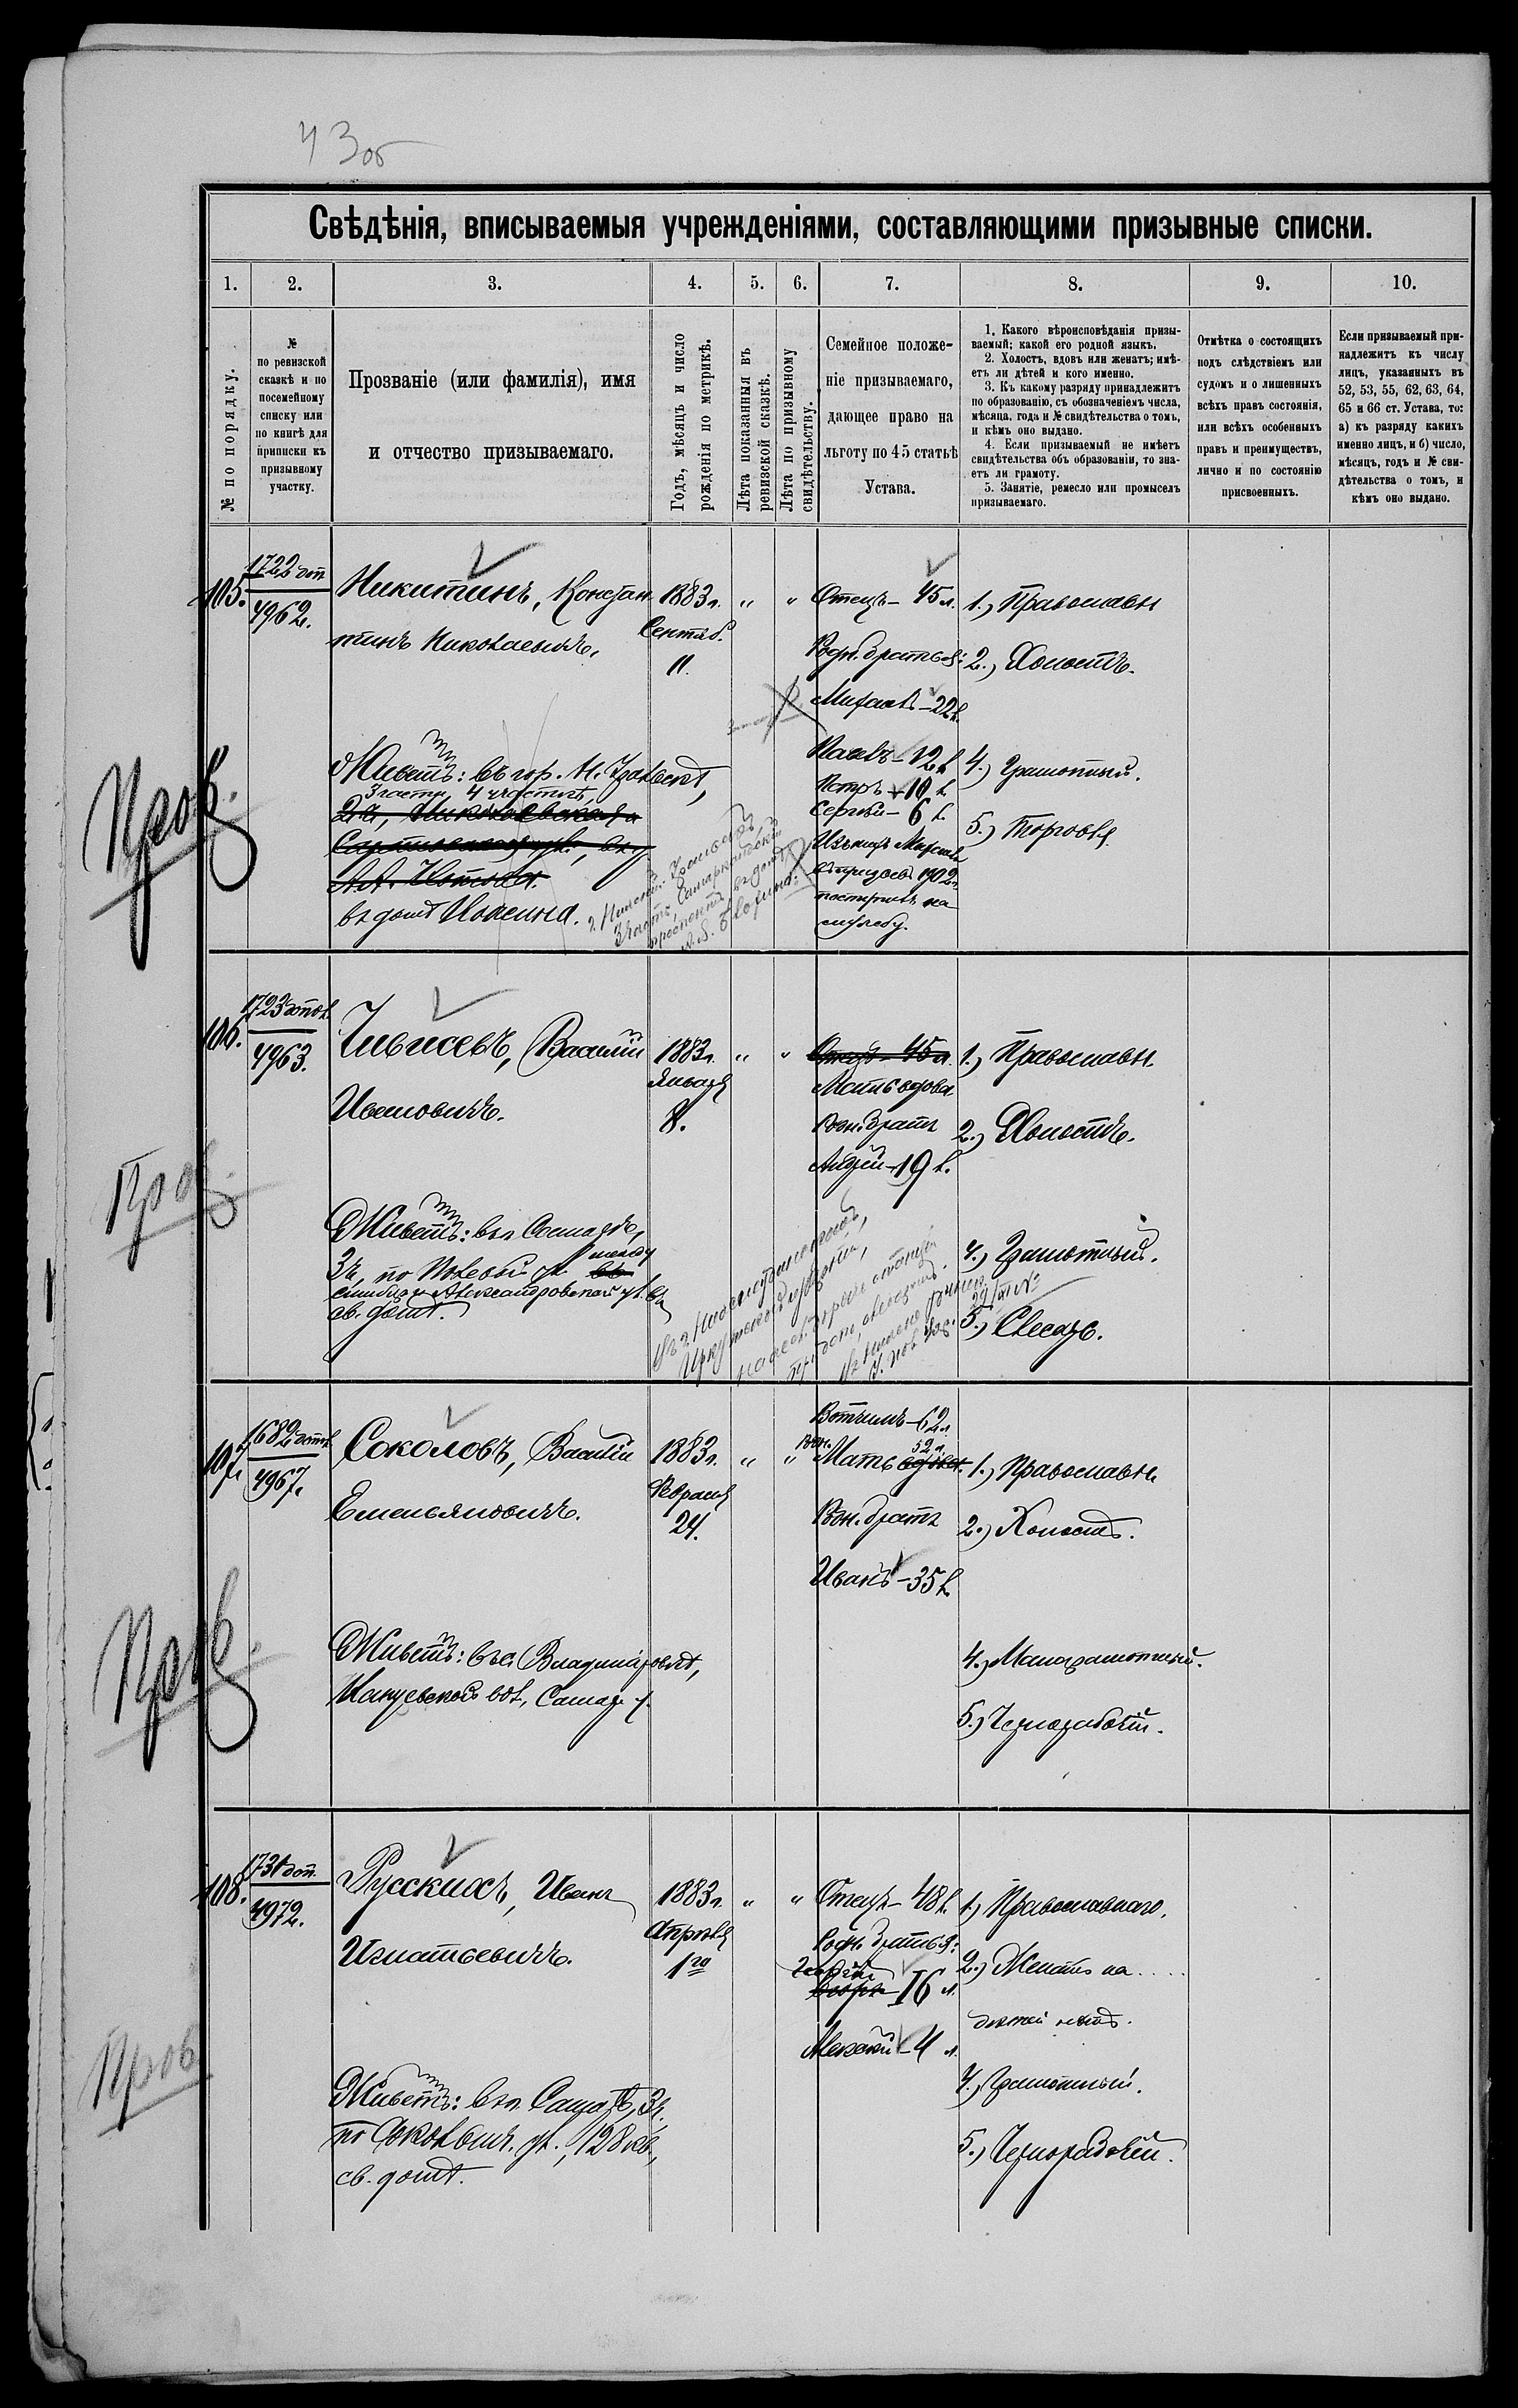 43 об
Свѣдѣнія, вписываемыя учрежденіями, составляющими призывные списки.
1. 2. 3. 4. 5. 6. 7. 8. 9. 10.
№ по порядку.
№
по ревизской
сказкѣ и по
посемейному
списку или
по книгѣ для
приписки къ
призывному
участку.
Прозваніе (или фамилія), имя
и отчество призываемаго.
Годъ, мѣсяцъ и число
рожденія по метрикѣ.
Лѣта показанныя въ
ревизской сказкѣ.
Лѣта по призывному
свидѣтельству.
Семейное положе-
ніе призываемаго,
дающее право на
льготу по 45 статьѣ
Устава.
1. Какого вѣроисповѣданія призы-
ваемый; какой его родной языкъ.
2. Холостъ, вдовъ или женатъ; имѣ-
етъ ли дѣтей и кого именно.
3. Къ какому разряду принадлежитъ
по образованію, съ обозначеніемъ числа,
мѣсяца, года и № свидѣтельства о томъ,
и кѣмъ оно выдано.
4. Если призываемый не имѣетъ
свидѣтельства объ образованіи, то зна-
етъ ли грамоту.
5. Занятіе, ремесло или промыселъ
призываемаго.
Отмѣтка о состоящихъ
подъ слѣдствіемъ или
судомъ и о лишенныхъ
всѣхъ правъ состоянія,
или всѣхъ особенныхъ
правъ и преимуществъ,
лично и по состоянію
присвоенныхъ.
Если призываемый при-
надлежитъ къ числу
лицъ, указанныхъ въ
52, 53, 55, 62, 63, 64,
65 и 66 ст. Устава, то:
а) къ разряду какихъ
именно лицъ, и б) число,
мѣсяцъ, годъ и № сви-
дѣтельства о томъ, и
кѣмъ оно выдано.
105.
1722 доп
4962.
Никитинъ, Констан
тинъ Николаевичъ,
1883 г.
Сентяб.
11.
" "
Отецъ - 45 л.
Родн. братья:
Михаилъ - 22 л.
Павелъ - 12 л
Петръ - 10 л
Сергѣй - 6 л.
Изъ нихъ Михаилъ
въ призывъ 1902 г.
поступилъ на
службу.
1.) Православн
2.) Холостъ.
4.) Грамотный.
5.) Торговля.
Пров.
Живетъ: въ гор. Н.
3 части, 4 участкѣ,
2 ч., Николаевская
въ домѣ
106.
1723
4963.
Василій
Ивановичъ.
1883 г.
Января
8.
" "
Отецъ - 45 л.
Мать вдова
Родн. братъ
Андрей - 19 л.
1.) Православн.
2.) Холостъ.
4.) Грамотный.
5.) Слесарь.
Пров.
Живетъ: въ г. Самарѣ,
3 ч., по Полевой ул. въ между
Александровской ул. въ
св. домѣ.
107.
1682
4967.
Соколовъ, Василій
Емельяновичъ.
1883 г.
Февраля
24.
" "
Вотчимъ - 62 л
Родн. Мать вдова. 52 л.
Родн. братъ
Иванъ - 35 л
1.) Православн.
2.) Холостъ.
4.) Малограмотный.
5.) Чернорабочій.
Пров.
Живетъ: въ с. Владиміровкѣ,
вол., Самар. у.
108.
1731 доп.
4972.
Русскихъ, Иванъ
Игнатьевичъ.
1883 г.
Апрѣля
1го
" "
Отецъ - 48 л.
Родн. братья:
16 л.
Алексѣй - 4 л.
1.) Православнаго.
2.) Женатъ на ....
дѣтей нѣтъ.
4.) Грамотный.
5.) Чернорабочій.
Пров
Живетъ: въ г. Самарѣ, 3 ч.,
по Сокольич. ул., 128 кв.,
св. домѣ.